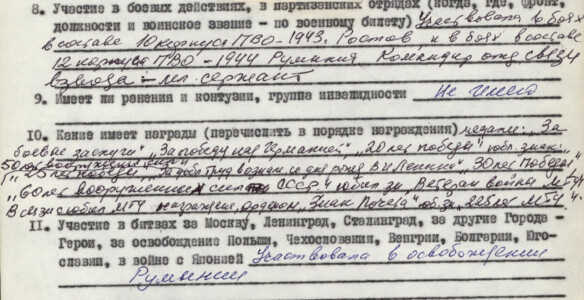 8. Участие в боевых действиях, в партизанских отрядах (когда, где, фронт,
должности и воинское звание - по военному билету) Участвовала в боях
в составе 10 корпуса ПВО - 1943, Ростов и в боях в составе
12 корпуса ПВО - 1944 Румыния Командир отд. связи
взвода - мл. сержант
9. Имеет ли ранения и контузии, группа инвалидности Не имею
10. Какие имеет награды (перечислить в порядке награждения) медали: „За
боевые заслуги", „За победу над Германией", „20 лет победы" юбил. знак
50 лет вооружённых сил"
„25 лет победы" „За добл. труд в озн. 100 дня рожд. В И Ленина" „30 лет Победы"
„60 лет вооруженных сил СССР" юбил. зн. Ветеран войны МГУ
В связи с юбил. МГУ награждена орденом „Знак Почета" юб. зн. 225 лет МГУ".
11. Участие в битвах за Москву, Ленинград, Сталинград, за другие Города -
Герои, за освобождение Польши, Чехословакии, Венгрии, Болгарии, Юго-
славии, в войне с Японией Участвовала в освобождении
Румынии